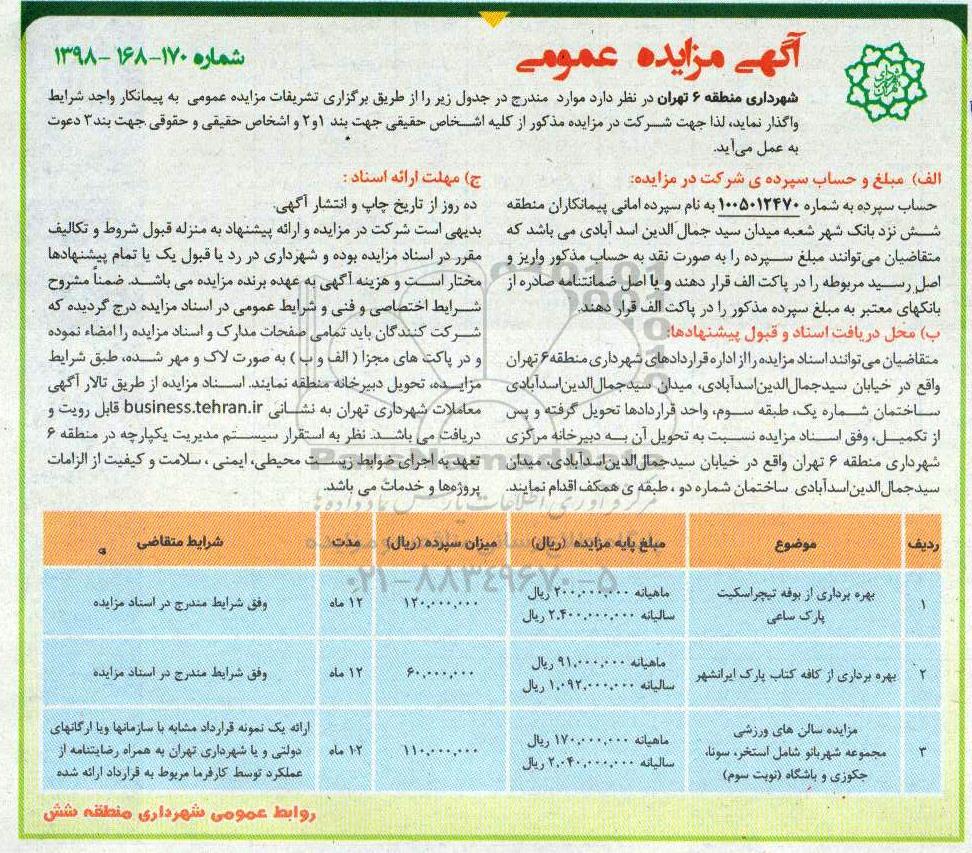 آگهی مزایده عمومی
شماره ۱۷۰-۱۶۸-۱۳۹۸
شهرداری منطقه ۶ تهران در نظر دارد موارد مندرج در جدول زیر را از طریق برگزاری تشریفات مزایده عمومی به پیمانکار واجد شرایط
واگذار نماید، لذا جهت شرکت در مزایده مذکور از کلیه اشخاص حقیقی جهت بند ۱و۲ و اشخاص حقیقی و حقوقی جهت بند۳ دعوت
به عمل می‌آید.
الف) مبلغ و حساب سپرده ی شرکت در مزایده:
حساب سپرده به شماره ۱۰۰۵۰۱۲۴۷۰ به نام سپرده امانی پیمانکاران منطقه
شش نزد بانک شهر شعبه میدان سید جمال الدین اسد آبادی می باشد که
متقاضیان می‌توانند مبلغ سپرده را به صورت نقد به حساب مذکور واریز و
اصل رسید مربوطه را در پاکت الف قرار دهند و یا اصل ضمانتنامه صادره از
بانکهای معتبر به مبلغ سپرده مذکور را در پاکت الف قرار دهند.
ب) محل دریافت اسناد و قبول پیشنهادها:
متقاضیان می‌توانند اسناد مزایده را از اداره قراردادهای شهرداری منطقه۶ تهران
واقع در خیابان سیدجمال‌الدین‌اسدآبادی، میدان سیدجمال‌الدین‌اسدآبادی
ساختمان شماره یک، طبقه سوم، واحد قراردادها تحویل گرفته و پس
از تکمیل، وفق اسناد مزایده نسبت به تحویل آن به دبیرخانه مرکزی
شهرداری منطقه ۶ تهران واقع در خیابان سیدجمال‌الدین‌اسدآبادی، میدان
سیدجمال‌الدین‌اسدآبادی ساختمان شماره دو ، طبقه ی همکف اقدام نمایند.
ج) مهلت ارائه اسناد :
ده روز از تاریخ چاپ و انتشار آگهی.
بدیهی است شرکت در مزایده و ارائه پیشنهاد به منزله قبول شروط و تکالیف
مقرر در اسناد مزایده بوده و شهرداری در رد یا قبول یک یا تمام پیشنهادها
مختار است و هزینه آگهی به عهده برنده مزایده می باشد. ضمناً مشروح
شرایط اختصاصی و فنی و شرایط عمومی در اسناد مزایده درج گردیده که
شرکت کنندگان باید تمامی صفحات مدارک و اسناد مزایده را امضاء نموده
و در پاکت های مجزا ( الف و ب ) به صورت لاک و مهر شده، طبق شرایط
مزایده، تحویل دبیرخانه منطقه نمایند. اسناد مزایده از طریق تالار آگهی
معاملات شهرداری تهران به نشانی business.tehran.ir قابل رویت و
دریافت می باشد. نظر به استقرار سیستم مدیریت یکپارچه در منطقه ۶
تعهد به اجرای ضوابط زیست محیطی، ایمنی ، سلامت و کیفیت از الزامات
پروژه‌ها و خدمات می باشد.
ParsNamadData
۰۲۱-۸۸۳۴۹۶۷۰-۵
ردیف موضوع مبلغ پایه مزایده (ریال) میزان سپرده (ریال) مدت شرایط متقاضی
۱ بهره برداری از بوفه تیچراسکیت پارک ساعی ماهیانه ۲۰۰,۰۰۰,۰۰۰ ریال سالیانه ۲,۴۰۰,۰۰۰,۰۰۰ ریال ۱۲۰,۰۰۰,۰۰۰ ۱۲ ماه وفق شرایط مندرج در اسناد مزایده
۲ بهره برداری از کافه کتاب پارک ایرانشهر ماهیانه ۹۱,۰۰۰,۰۰۰ ریال سالیانه ۱,۰۹۲,۰۰۰,۰۰۰ ریال ۶۰,۰۰۰,۰۰۰ ۱۲ ماه وفق شرایط مندرج در اسناد مزایده
۳ مزایده سالن های ورزشی مجموعه شهربانو شامل استخر، سونا، جکوزی و باشگاه (نوبت سوم) ماهیانه ۱۷۰,۰۰۰,۰۰۰ ریال سالیانه ۲,۰۴۰,۰۰۰,۰۰۰ ریال ۱۱۰,۰۰۰,۰۰۰ ۱۲ ماه ارائه یک نمونه قرارداد مشابه با سازمانها ویا ارگانهای دولتی و یا شهرداری تهران به همراه رضایتنامه از عملکرد توسط کارفرما مربوط به قرارداد ارائه شده
روابط عمومی شهرداری منطقه شش